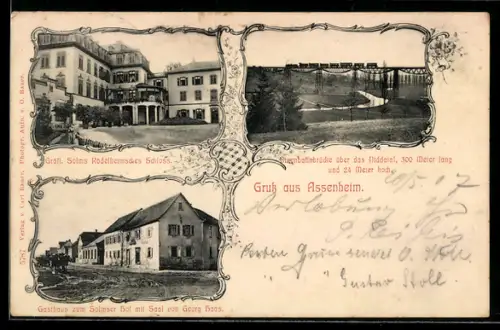 Gräfl. Solms Rödelheimsches Schloss.
Eisenbahnbrücke über das Niddatal, 300 Meter lang
und 24 Meter hoch
Gruß aus Assenheim.
Gasthaus zum Solmser Hof mit Saal von Georg Haas.
5287 Verlag v. Carl Bauer. Photogr. Aufn. v. O. Bauer.
Verlobung
senden O. Stoll
Gustav Stoll